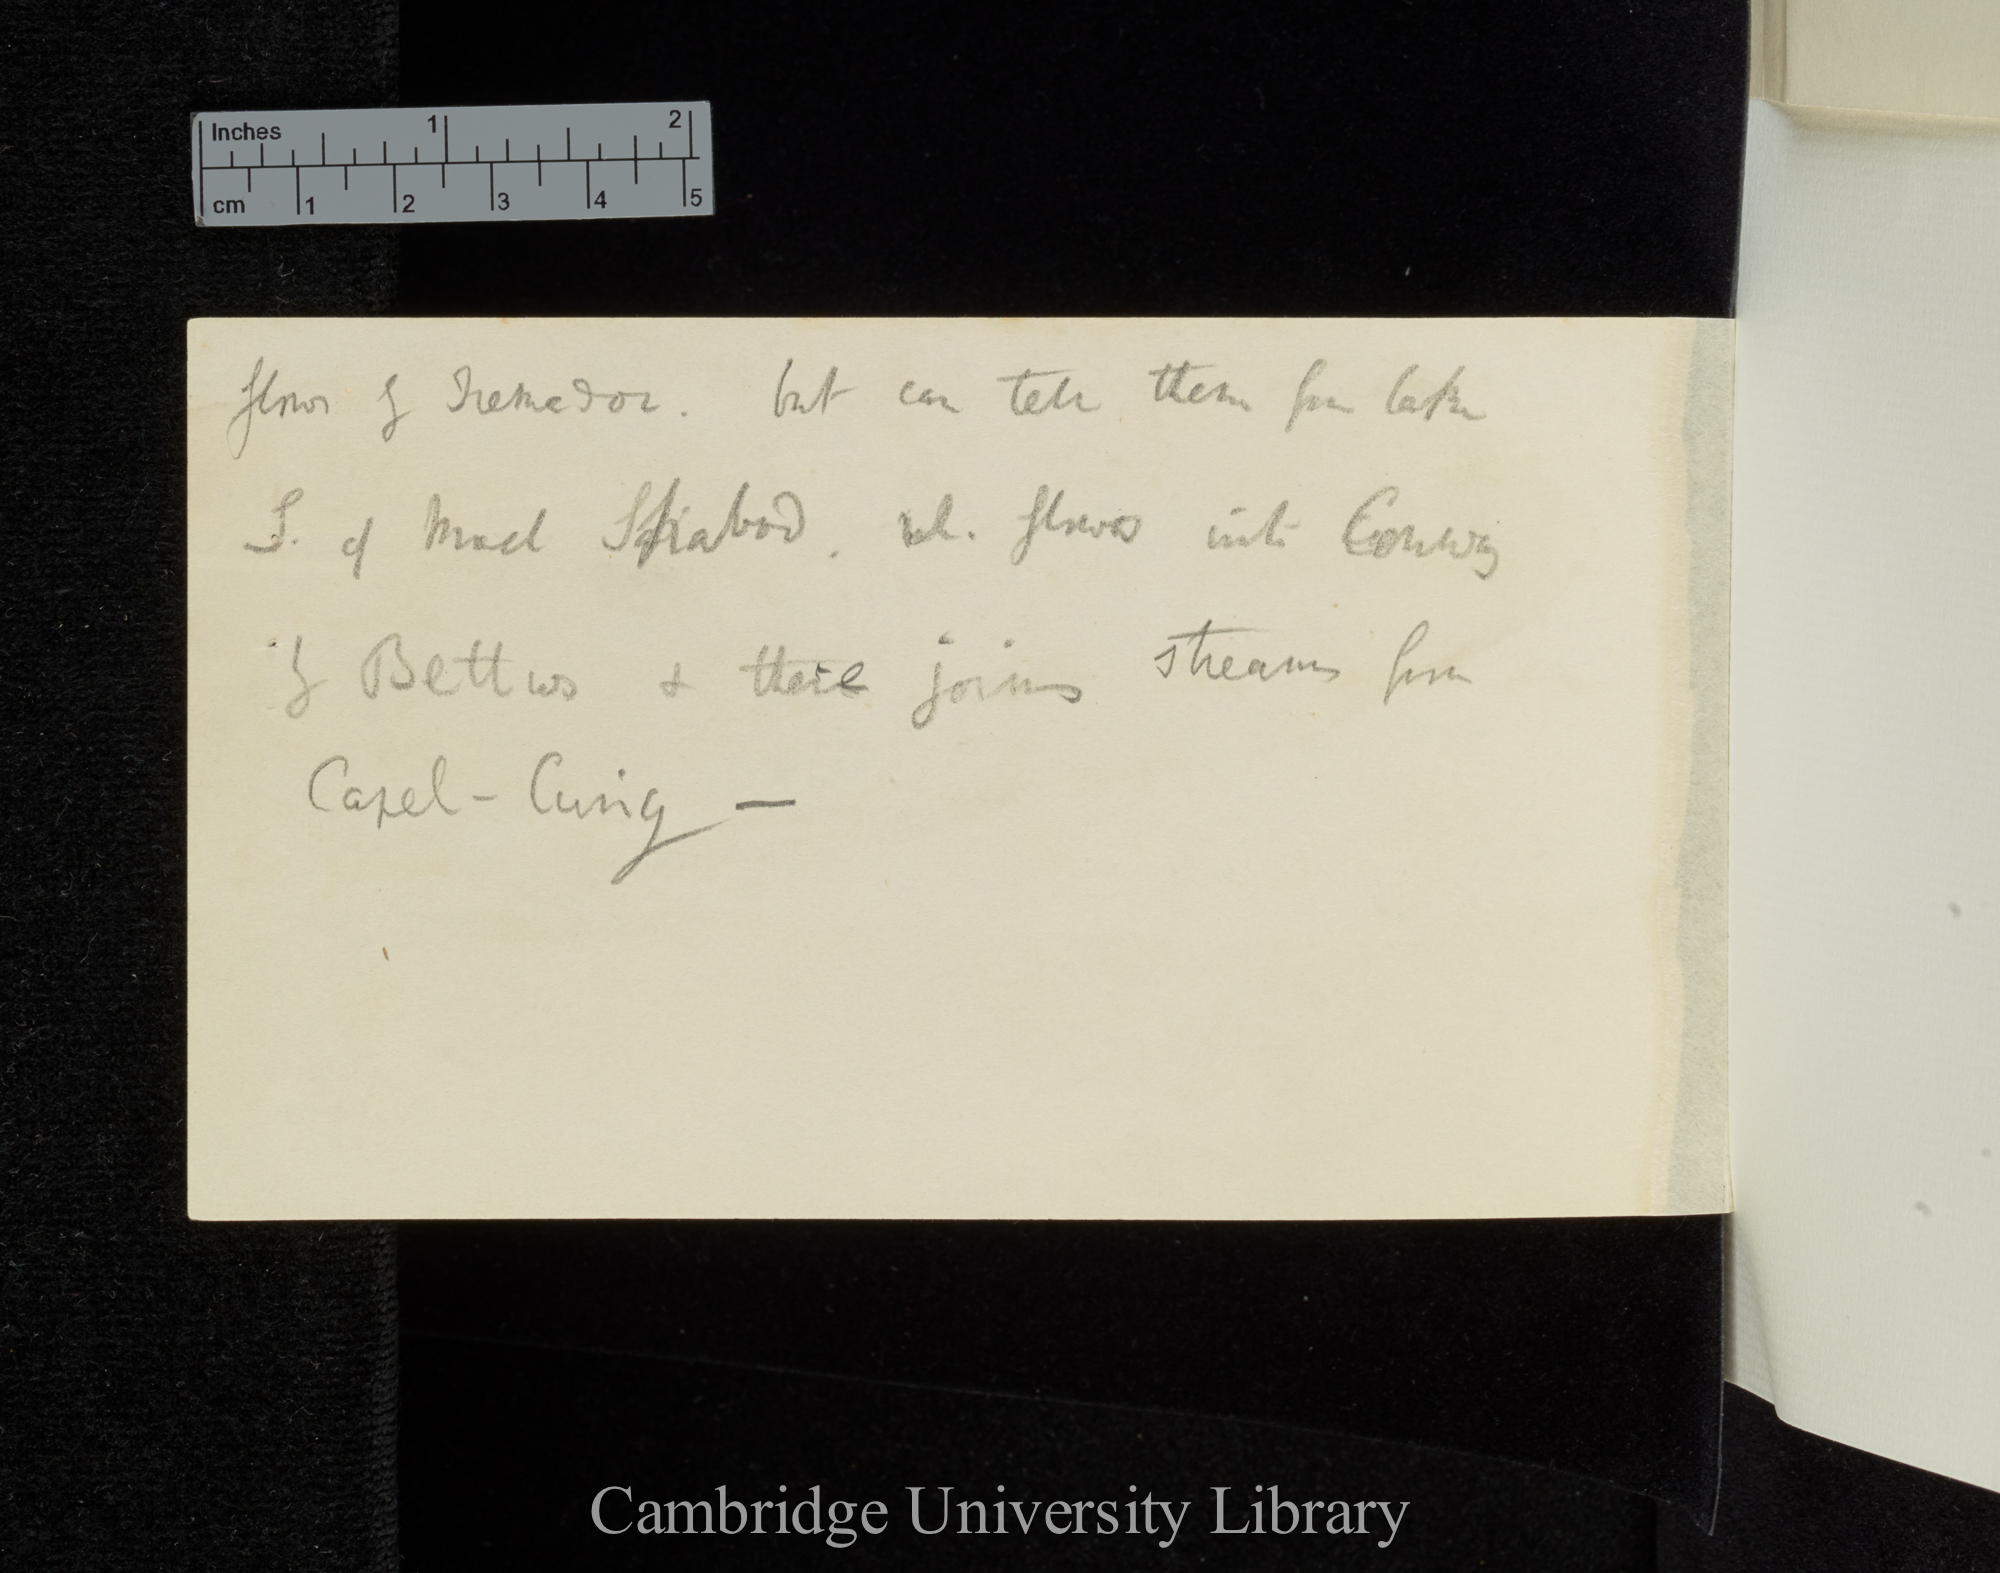 Inches 1 2
cm 1 2 3 4 5
flows by Tremadoc. but can tell them from lake
S. of Moel Shiabod. wh. flows into Conway
by Bettws & there joins streams from
Capel-Curig —
Cambridge University Library